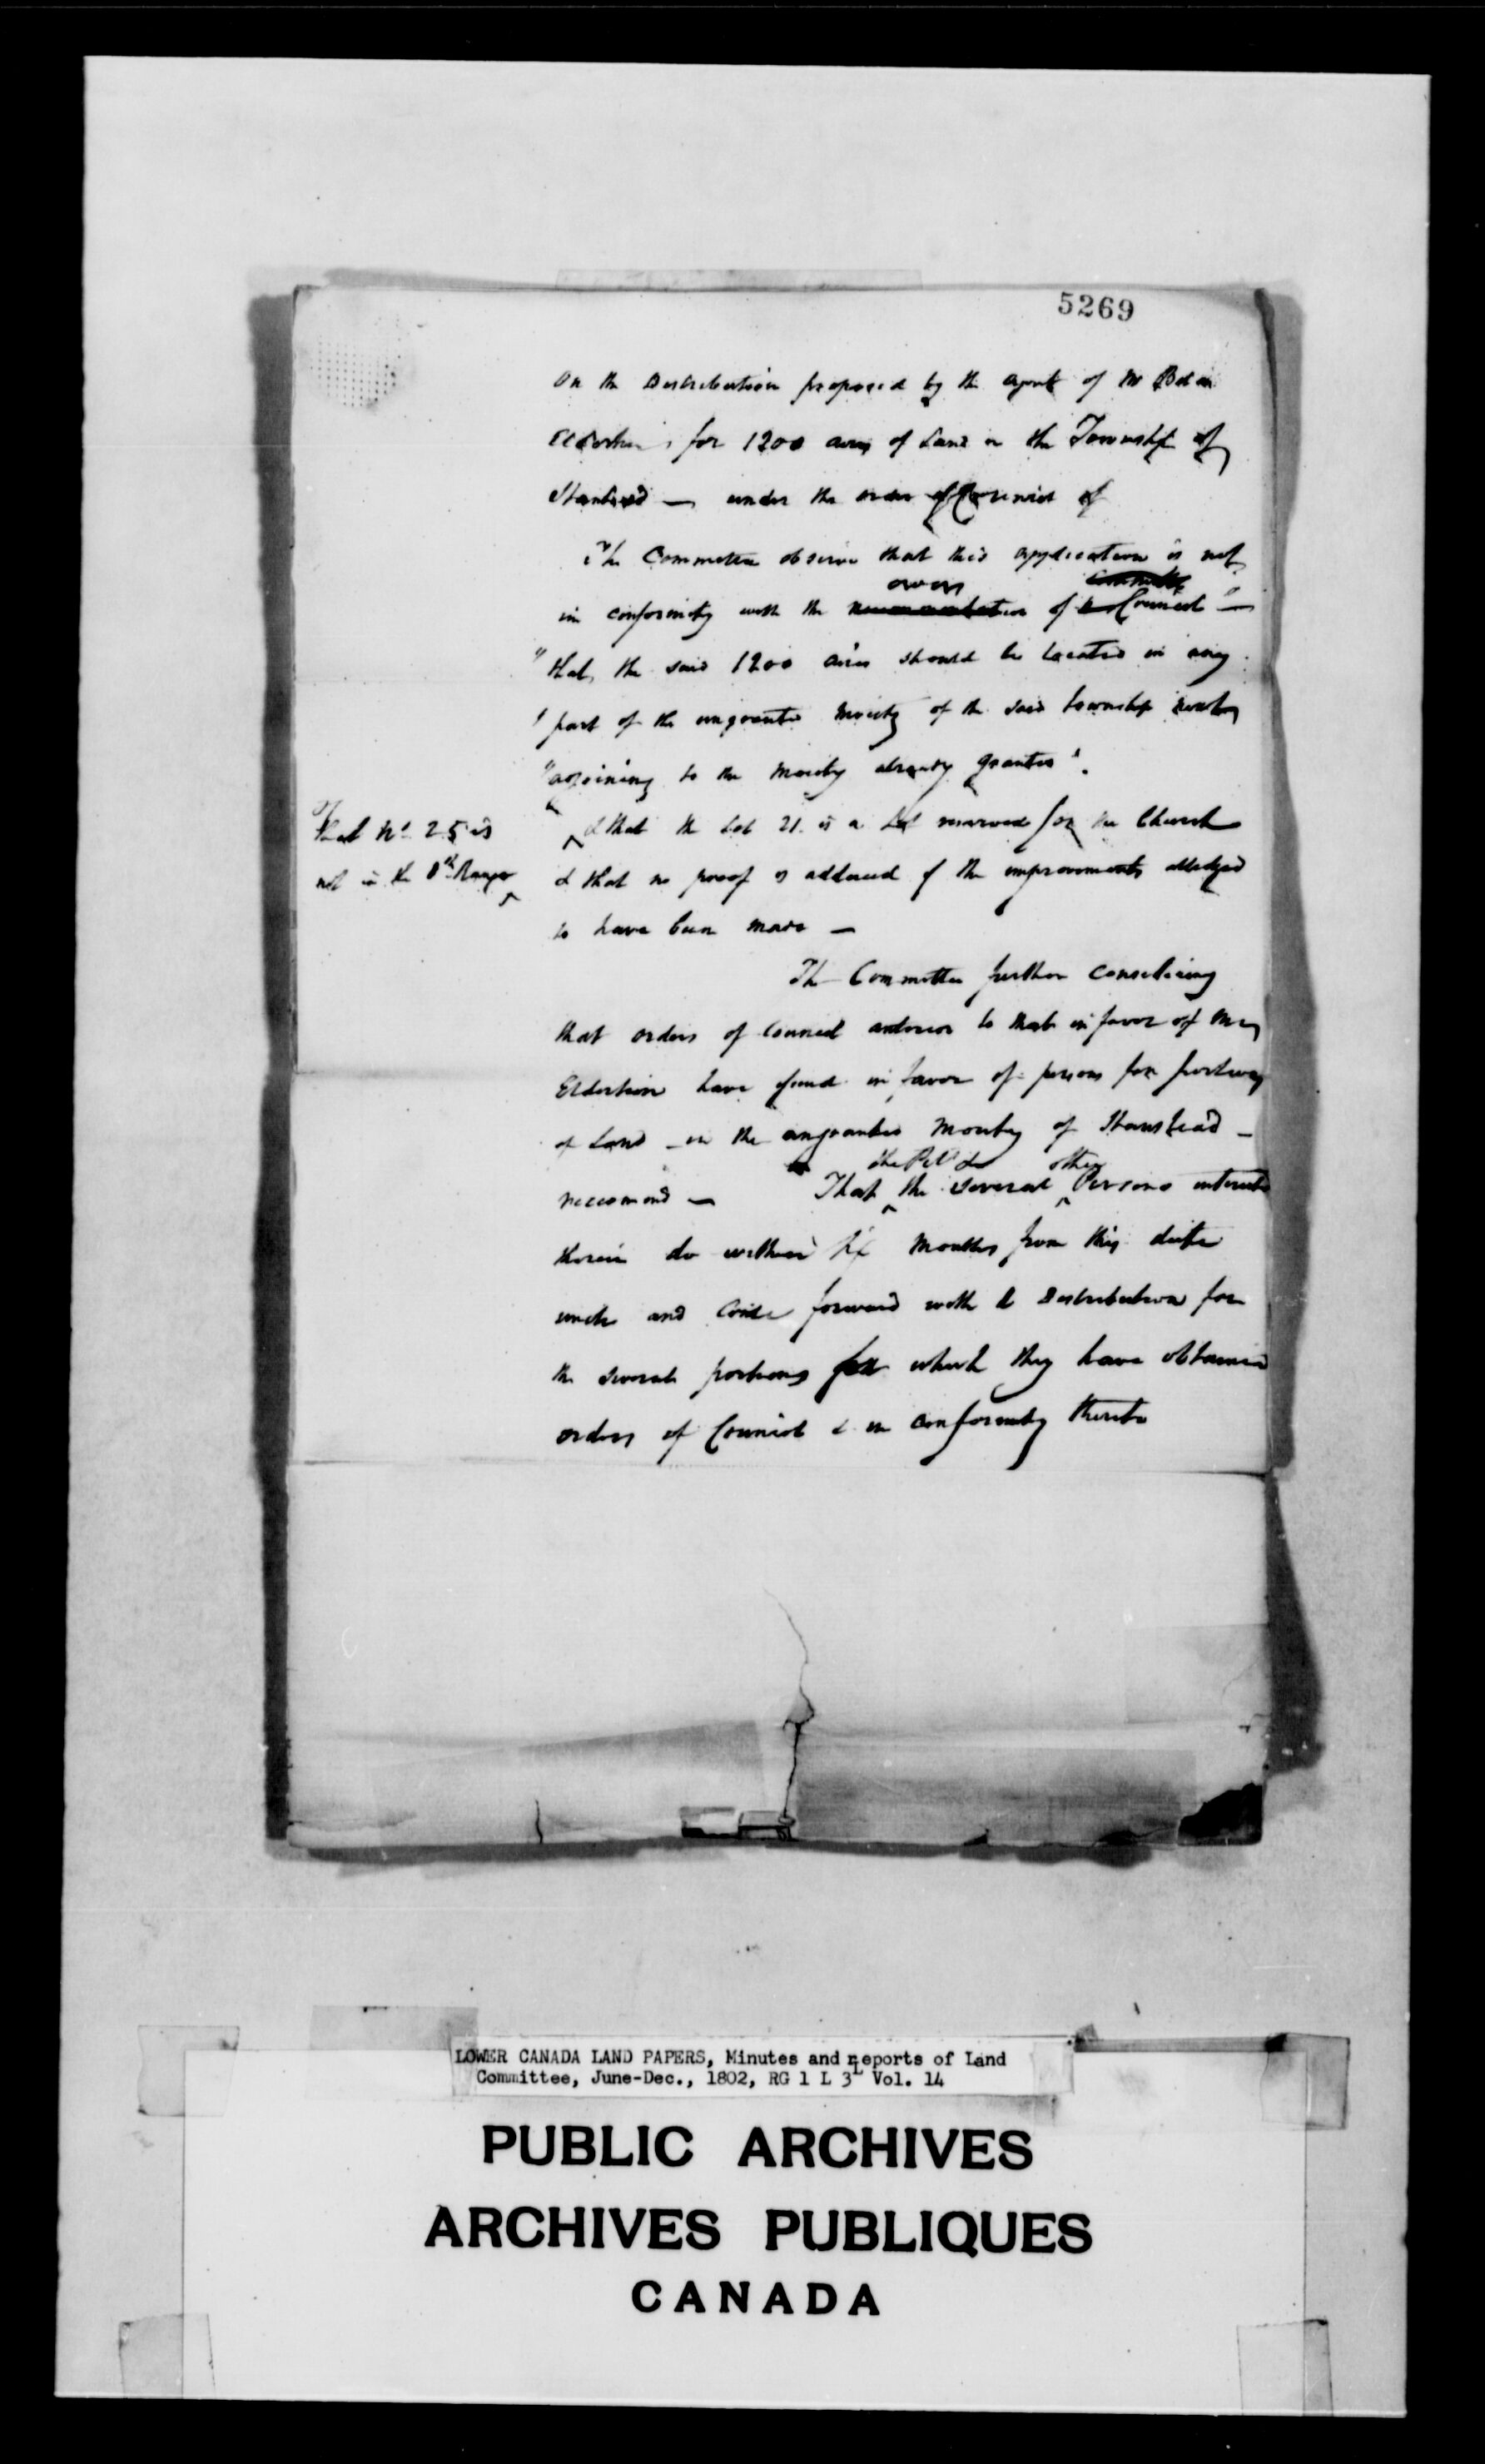 5269
On the Distribution proposed by the agent of Mr
for 1200 acres of Land in the Township of
Stanstead — under the order of Council of
The Committee observe that this application is not
order Committee
in conformity with the recommendation of Council —
"that the said 1200 acres should be located in any
" part of the ungranted moiety of the said township
"adjoining to the moiety already granted".
That No 25 is
not in the 8th Range
& that the Lot 21 is a Lot reserved for the Church
& that no proof is adduced of the improvements alledged
to have been made —
The Committee further considering
that orders of Council anterior to that in favor of Mr
Elderkin have in favor of persons for portions
of Land in the ungranted moiety of Stanstead —
the Petr & other
reccomend — That the several Persons interested
therein do within six months from this date
unite and come forward with a Distribution for
the several portions for which they have obtained
orders of Council & in conformity thereto
LOWER CANADA LAND PAPERS, Minutes and Reports of Land
Committee, June-Dec., 1802, RG 1 L 3L Vol. 14
PUBLIC ARCHIVES
ARCHIVES PUBLIQUES
CANADA